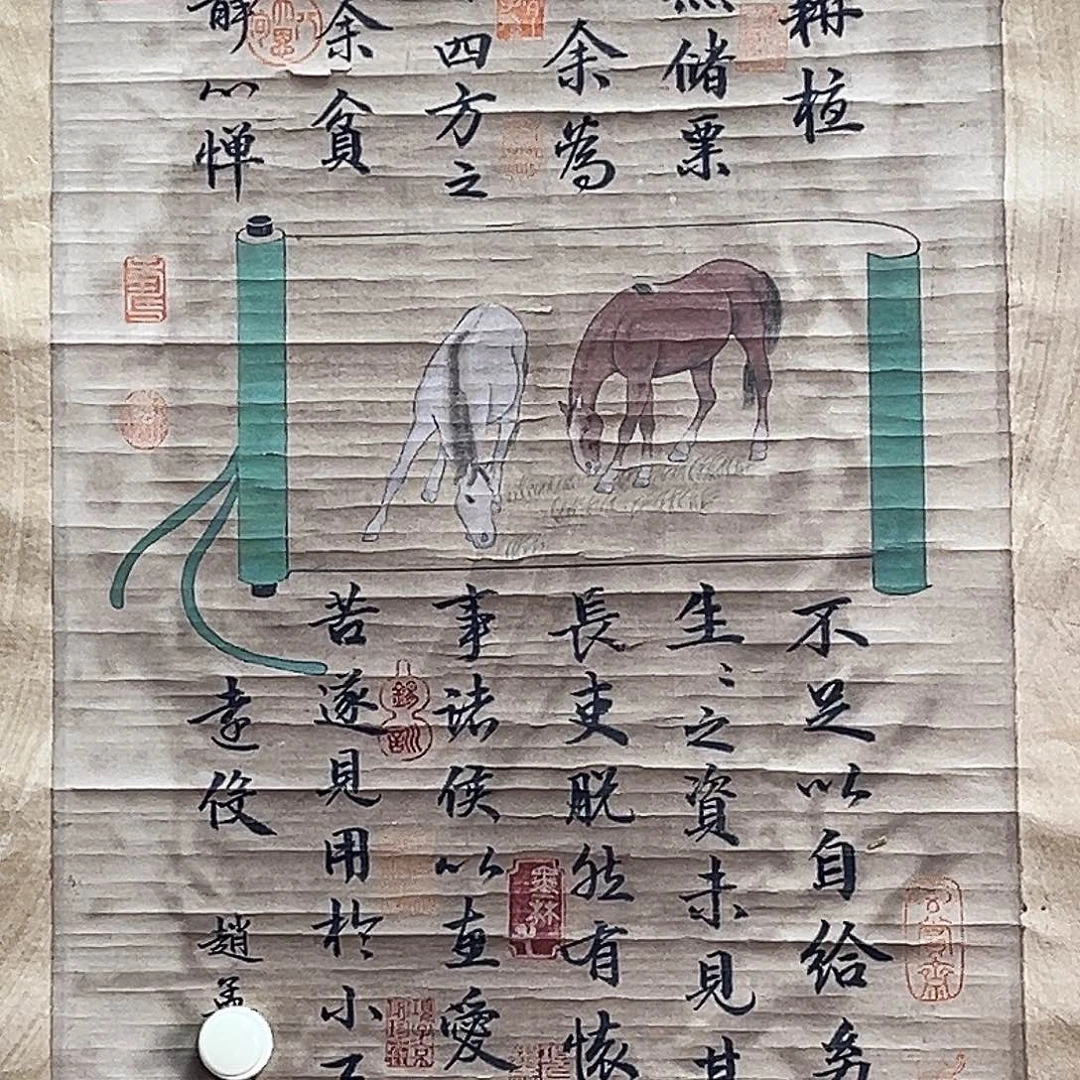 耕植不足以自給
無儲粟生〻之資未見其
余為長吏脫然有懷
四方之事諸侯以惠愛
余貧苦遂見用於小
靜心憚遠役
趙孟
墨林